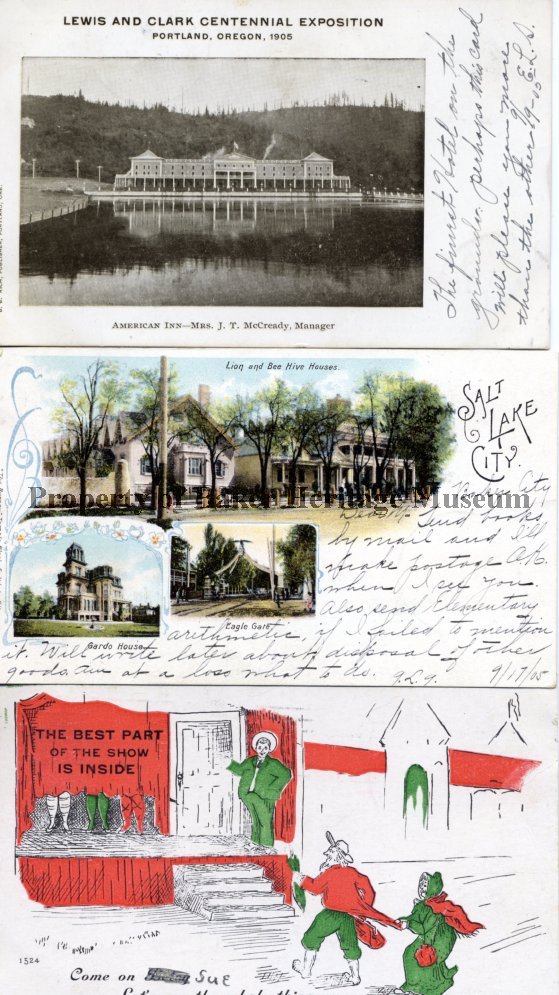 LEWIS AND CLARK CENTENNIAL EXPOSITION
PORTLAND, OREGON, 1905
AMERICAN INN—MRS. J. T. McCREADY, MANAGER
The finest Hotel on the
grounds. perhaps this card
will please you more
than the other
Lion and Bee Hive Houses.
SALT
LAKE
CITY.
Property of Baker Heritage Museum
Send books
by mail and I'll
make postage O.K.
when I see you.
Also send Elementary
arithmetic, if I failed to mention
it. Will write later about disposal of other
goods. am at a loss what to do.
9/17/05
Gardo House
Eagle Gate
THE BEST PART
OF THE SHOW
IS INSIDE
1524
Come on
SUE